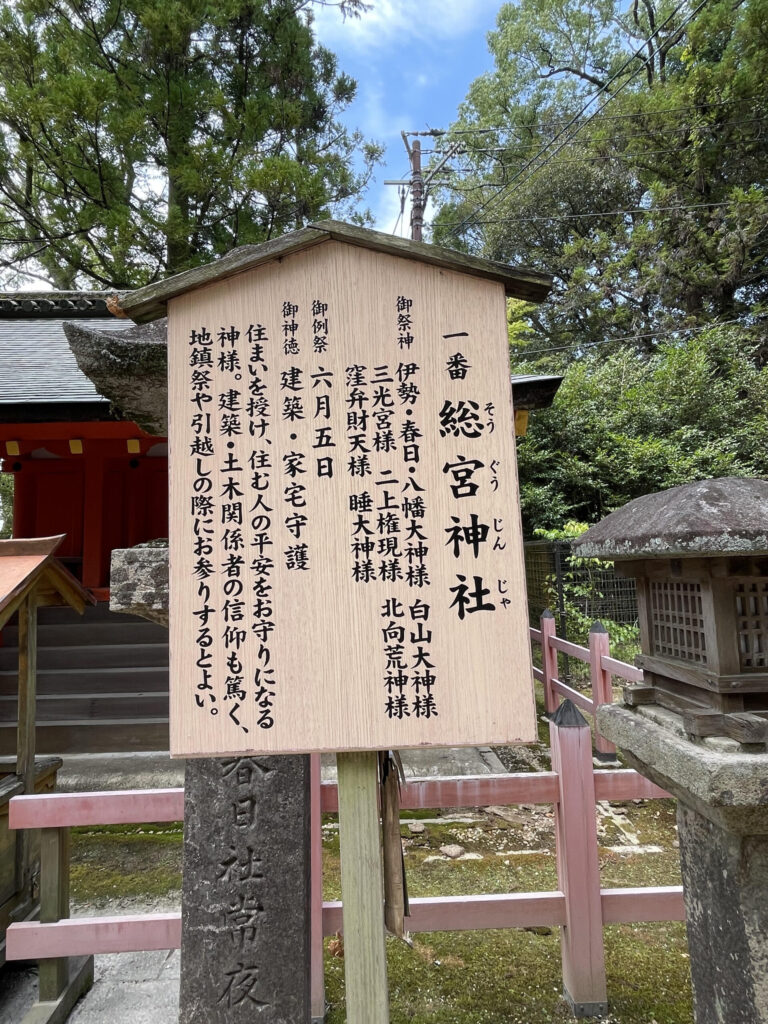 一番 総宮神社
そうぐうじんじゃ
御祭神 伊勢・春日・八幡大神様 白山大神様
三光宮様 二上権現様 北向荒神様
窪弁財天様 睡大神様
御例祭 六月五日
御神徳 建築・家宅守護
住まいを授け、住む人の平安をお守りになる
神様。建築・土木関係者の信仰も篤く、
地鎮祭や引越しの際にお参りするとよい。
春日社常夜